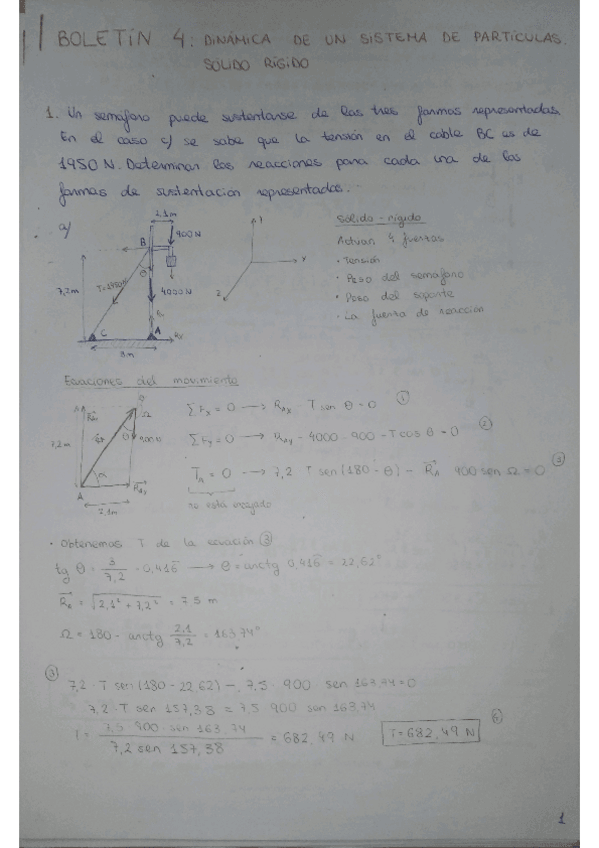 BOLETÍN 4: DINÁMICA DE UN SISTEMA DE PARTÍCULAS.
SÓLIDO RÍGIDO
1. Un semáforo puede sustentarse de las tres formas representadas.
En el caso c) se sabe que la tensión en el cable BC es de
1950 N. Determinar las reacciones para cada una de las
formas de sustentación representadas.
a)
2,1m
900N
B
θ
7,2m
4000N
C
A
Rx
3m
Y
X
Z
Sólido-rígido
Actúan 4 fuerzas
· Tensión
· Peso del semáforo
· Peso del soporte
· La fuerza de reacción
Ecuaciones del movimiento
Ω
7,2m
900N
α
A
RAx
2,1m
ΣFx = 0 → RAx T sen θ = 0 ①
ΣFy = 0 → RAy - 4000 - 900 - T cos θ = 0 ②
TA = 0 → 7,2 T sen (180 - θ) - RA 900 sen Ω = 0 ③
no está
· Obtenemos T de la ecuación ③
tg θ = 3/7,2 = 0,416 → θ = arctg 0,416 = 22,62°
RA = √2,1² + 7,2² = 7,5 m
Ω = 180 - arctg 2,1/7,2 = 163,74°
③ 7,2 · T sen (180 - 22,62) - 7,5 · 900 sen 163,74 = 0
7,2 · T sen 157,38 = 7,5 900 sen 163,74
T = 7,5 900 sen 163,74 / 7,2 sen 157,38 = 682,49 N
T = 682,49 N
1